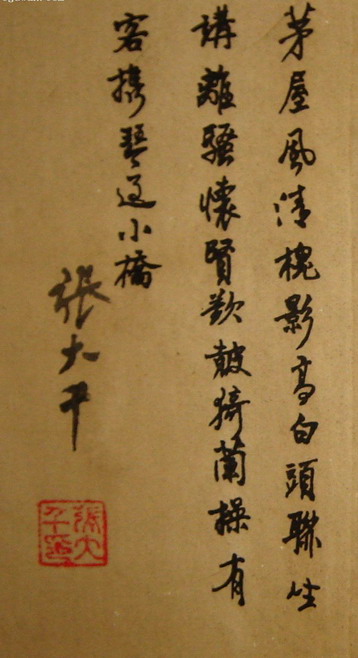 茅屋風清槐影高白頭聯坐
講離騷懷賢欲鼓猗蘭操有
客携琴過小橋
張大千
張大千